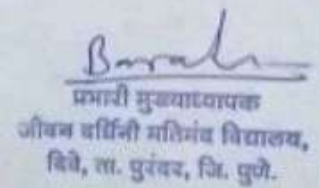 प्रभारी मुख्याध्यापक
जीवन वर्धिनी मतिमंद विद्यालय,
दिवे, ता. पुरंदर, जि. पुणे.